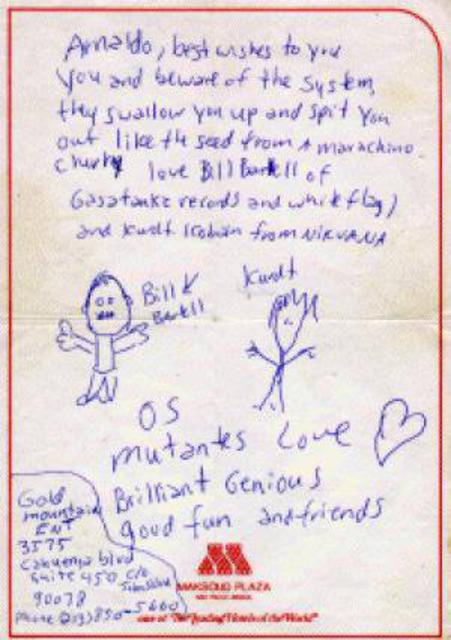 Arnaldo, best wishes to you
you and beware of the System,
they swallow you up and spit you
out like the seed from A marachino
cherry love Bill Bartell of
Gasatanka records and white flag)
and Kurdt Kobain from NIRVANA
Bill
Bartell
Kurdt
OS
mutantes Love
Brilliant Genious
good fun and friends
Gold
mountain
ENT
3575
Cahuenga blvd
Suite 450 c/o
90078
Phone (213) 850-5660
MAKSOUD PLAZA
SÃO PAULO BRASIL
one of "The Leading Hotels of the World"